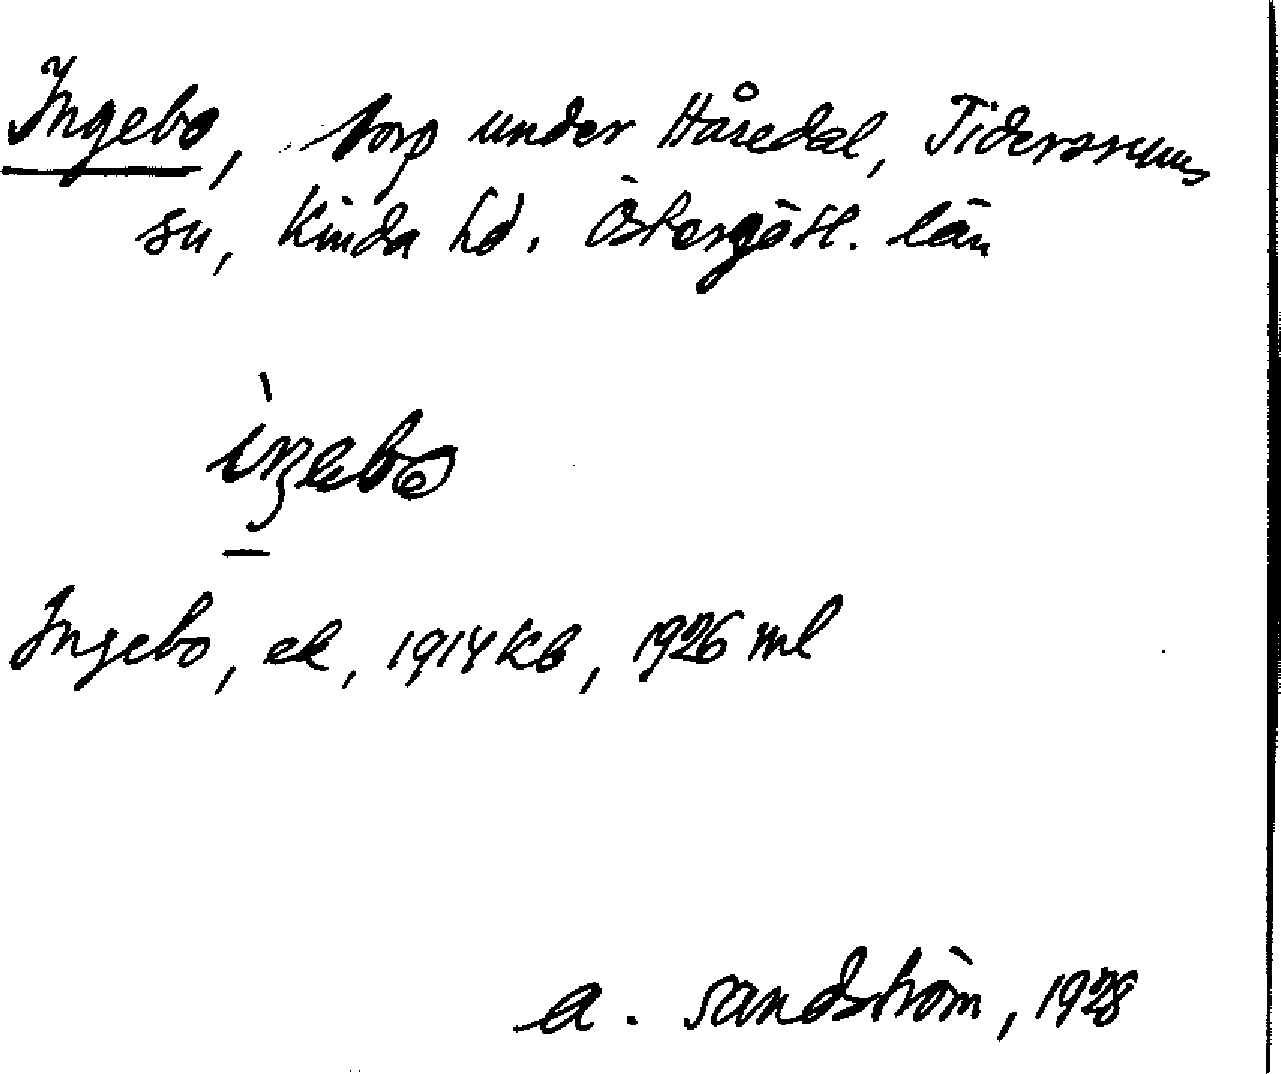 Ingebo, torp under Håredal, Tidersrums
sn, Kinda hd. Östergötl. län
ìŋebo
Ingebo, ek, 1914 kb, 1926 ml
A. Sandström, 1928